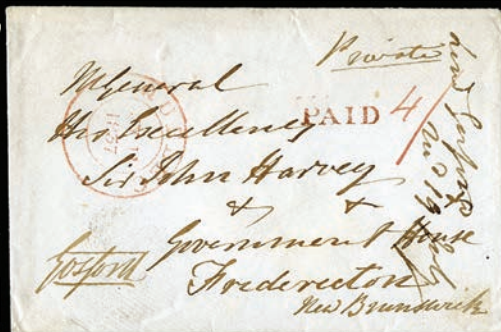 Private
M General
His Excellency
PAID 4/
Sir John Harvey
& &
Government House
Fredericton
New Brunswick
Gosford
Lord Gosford